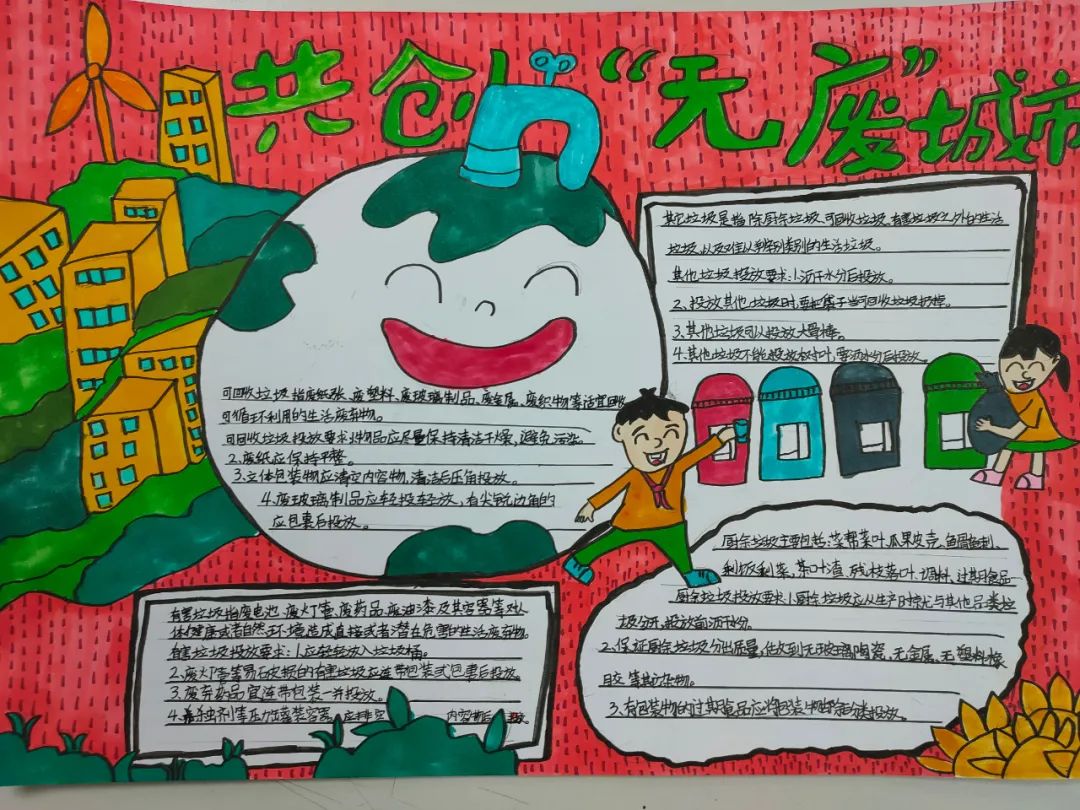 共创"无废"城市
其它垃圾是指除厨余垃圾、可回收垃圾、有害垃圾之外的生活
垃圾,以及难以辨别类别的生活垃圾。
其他垃圾投放要求:1.沥干水分后投放。
2.投放其他垃圾时,要把属于当可回收垃圾扔掉。
3.其他垃圾可以投放大骨棒。
4.其他垃圾不能投放树叶,要沥水分后投放。
可回收垃圾指废纸张、废塑料、废玻璃制品、废金属、废织物等适宜回收
可循环利用的生活废弃物。
可回收垃圾投放要求:1.物品应尽量保持清洁干燥,避免污染
2.废纸应保持平整。
3.立体包装物应清空内容物,清洁后压角投放。
4.废玻璃制品应轻投轻放,有尖锐边角的
应包裹后投放。
厨余垃圾主要包括:菜帮菜叶、瓜果皮壳、鱼骨鱼刺、
剩饭剩菜,茶叶渣、残枝落叶、调料、过期食品
厨余垃圾投放要求:1.厨余垃圾应从生产时就与其他品类垃
圾分开,投放前沥干水份。
2.保证厨余垃圾分出质量,做到无玻璃陶瓷,无金属、无塑料橡
胶等其它杂物。
3.有包装物的过期食品应将包装物去除后分类投放。
有害垃圾指废电池、废灯管、废药品、废油漆及其容器等对人
体健康或者自然环境造成直接或者潜在危害的生活废弃物。
有害垃圾投放要求:1.应轻轻放入垃圾桶。
2.废灯管等易破损的有害垃圾应连带包装或包裹后投放。
3.废弃药品宜连带包装一并投放。
4.杀虫剂等压力罐装容器,应排空内容物后投放